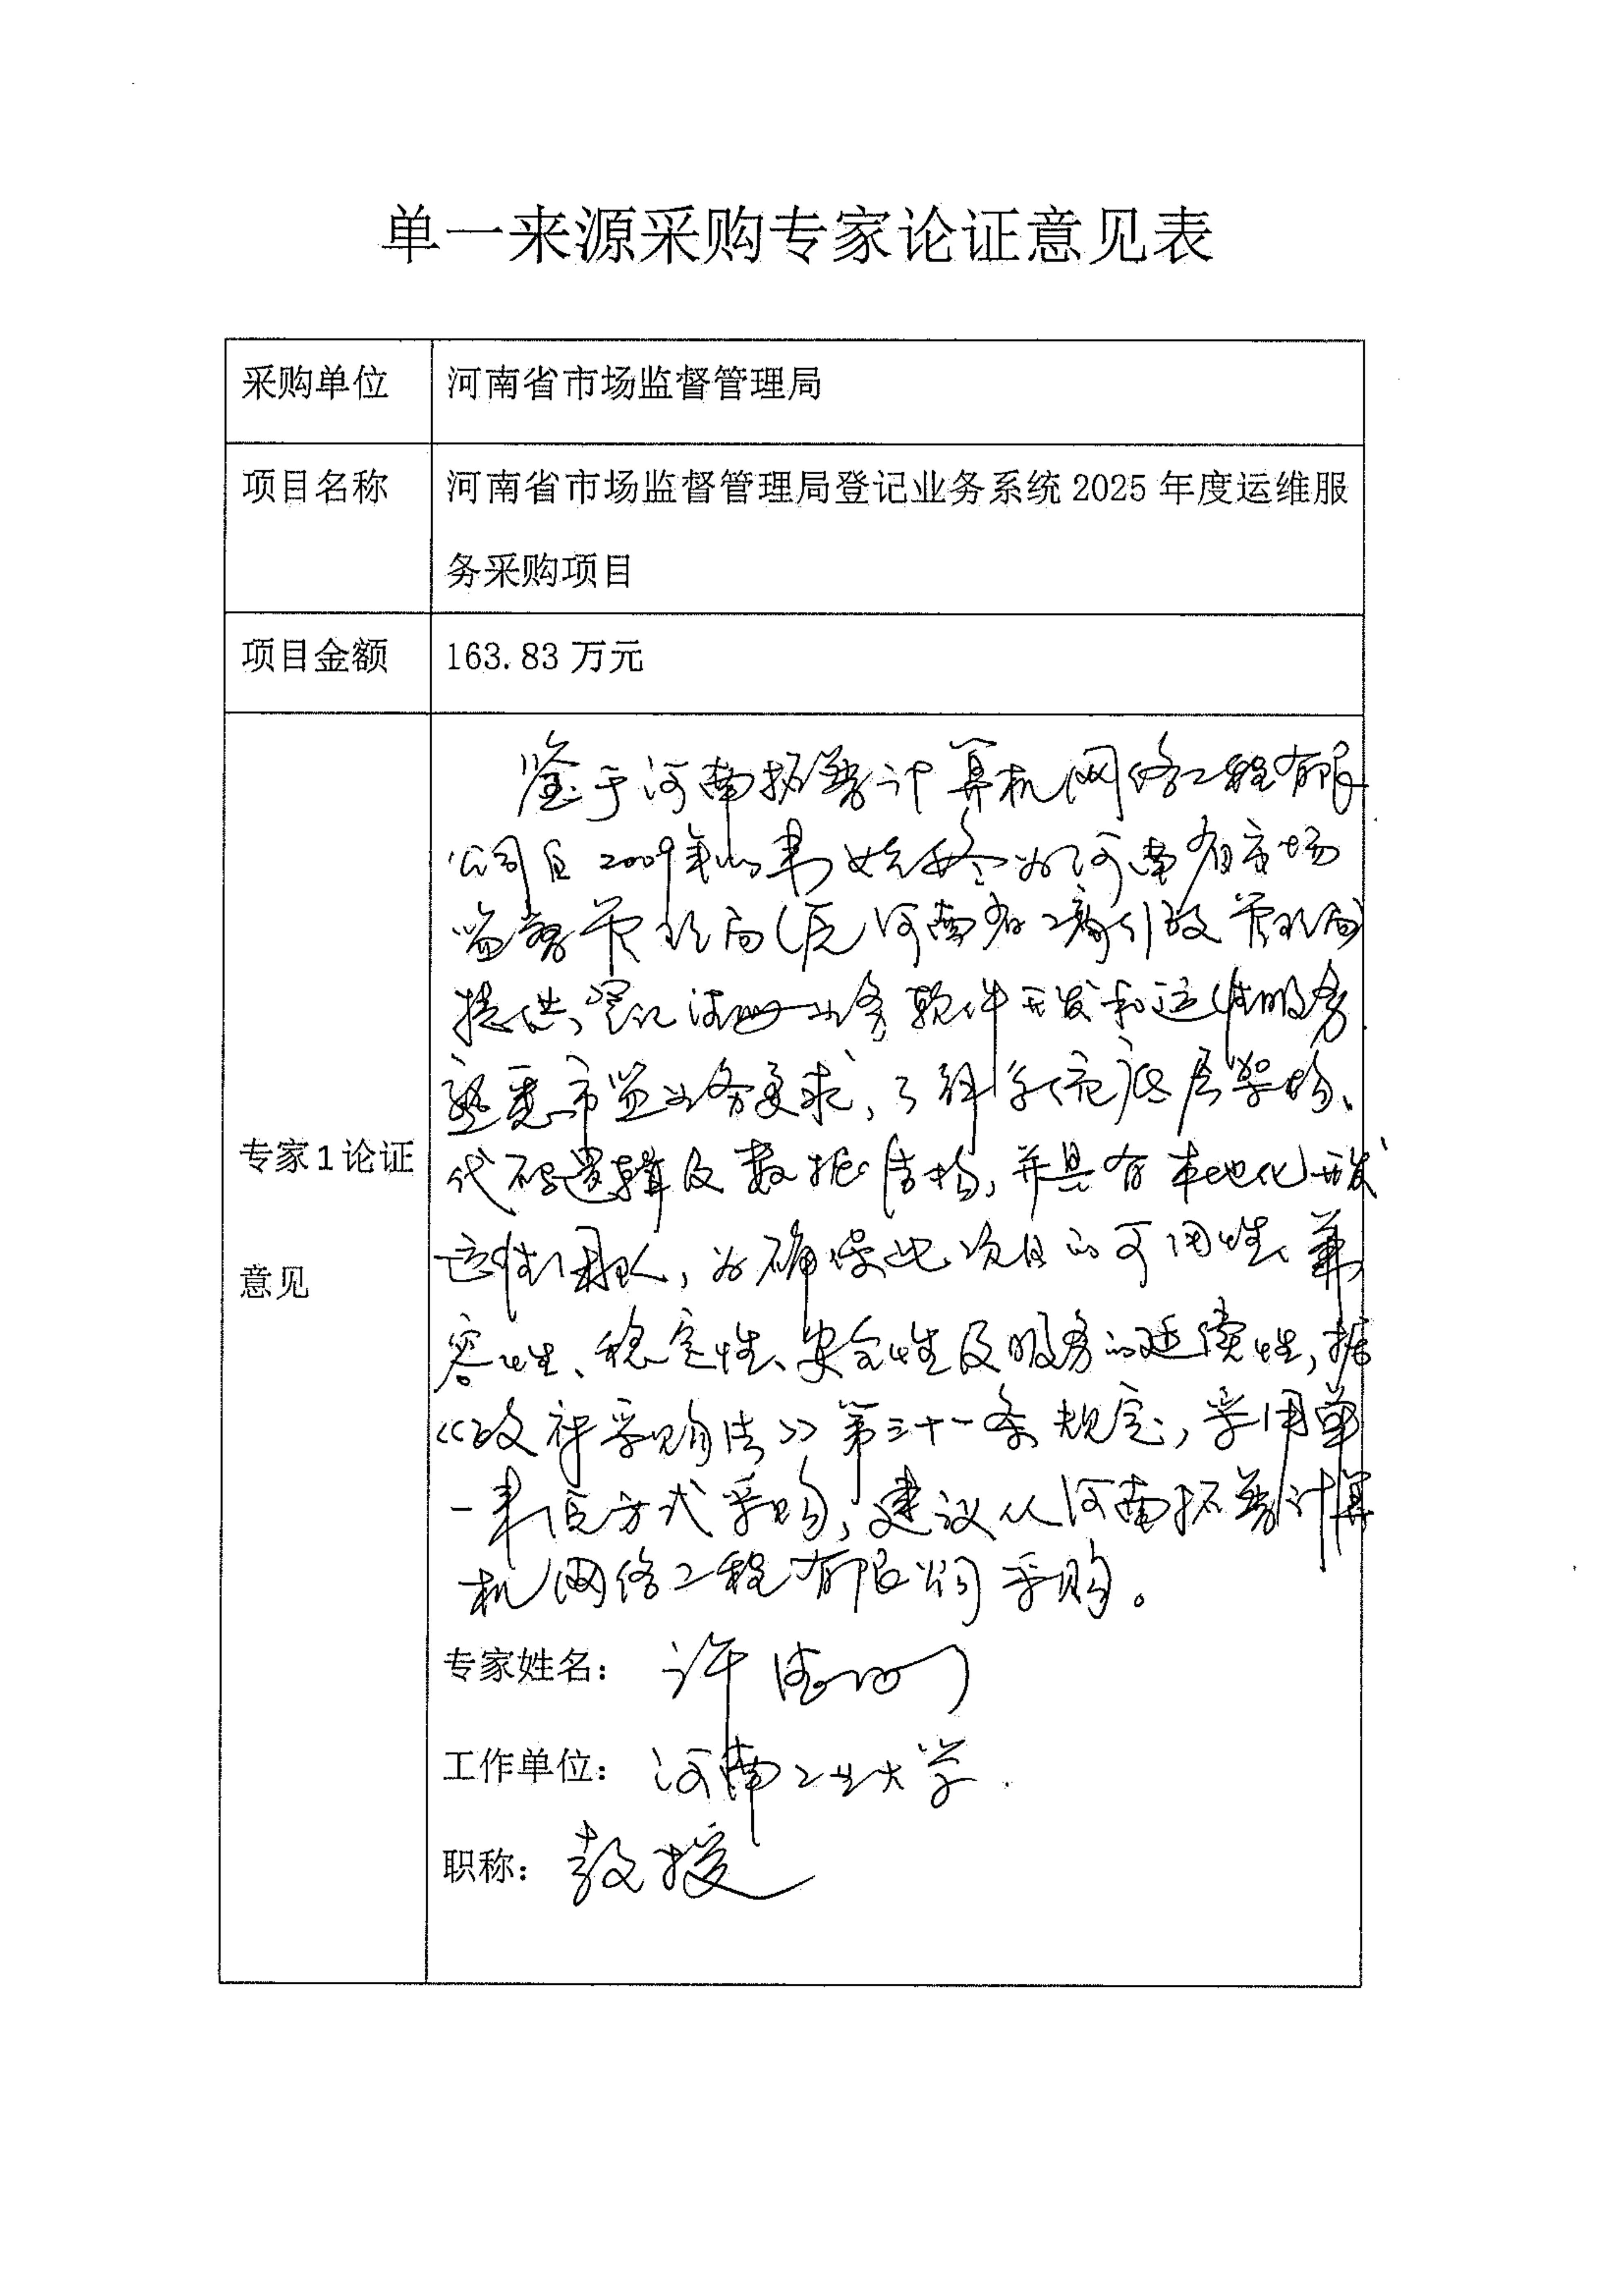 单一来源采购专家论证意见表
采购单位
河南省市场监督管理局
项目名称
河南省市场监督管理局登记业务系统 2025 年度运维服
务采购项目
项目金额
163.83 万元
专家1论证
意见
鉴于河南拓普计算机网络工程有限
公司自2009年以来始终为河南省市场
监督管理局(原河南省工商行政管理局)
提供登记注册业务软件开发和运维服务
熟悉市监业务要求,了解系统底层架构、
代码逻辑及数据结构,并具有本地化开发
运维团队,为确保此项目的可用性、兼
容性、稳定性、安全性及服务的延续性,据
《政府采购法》第三十一条规定,采用单
一来源方式采购,建议从河南拓普计算
机网络工程有限公司采购。
专家姓名: 许德
工作单位: 河南工业大学.
职称: 教授